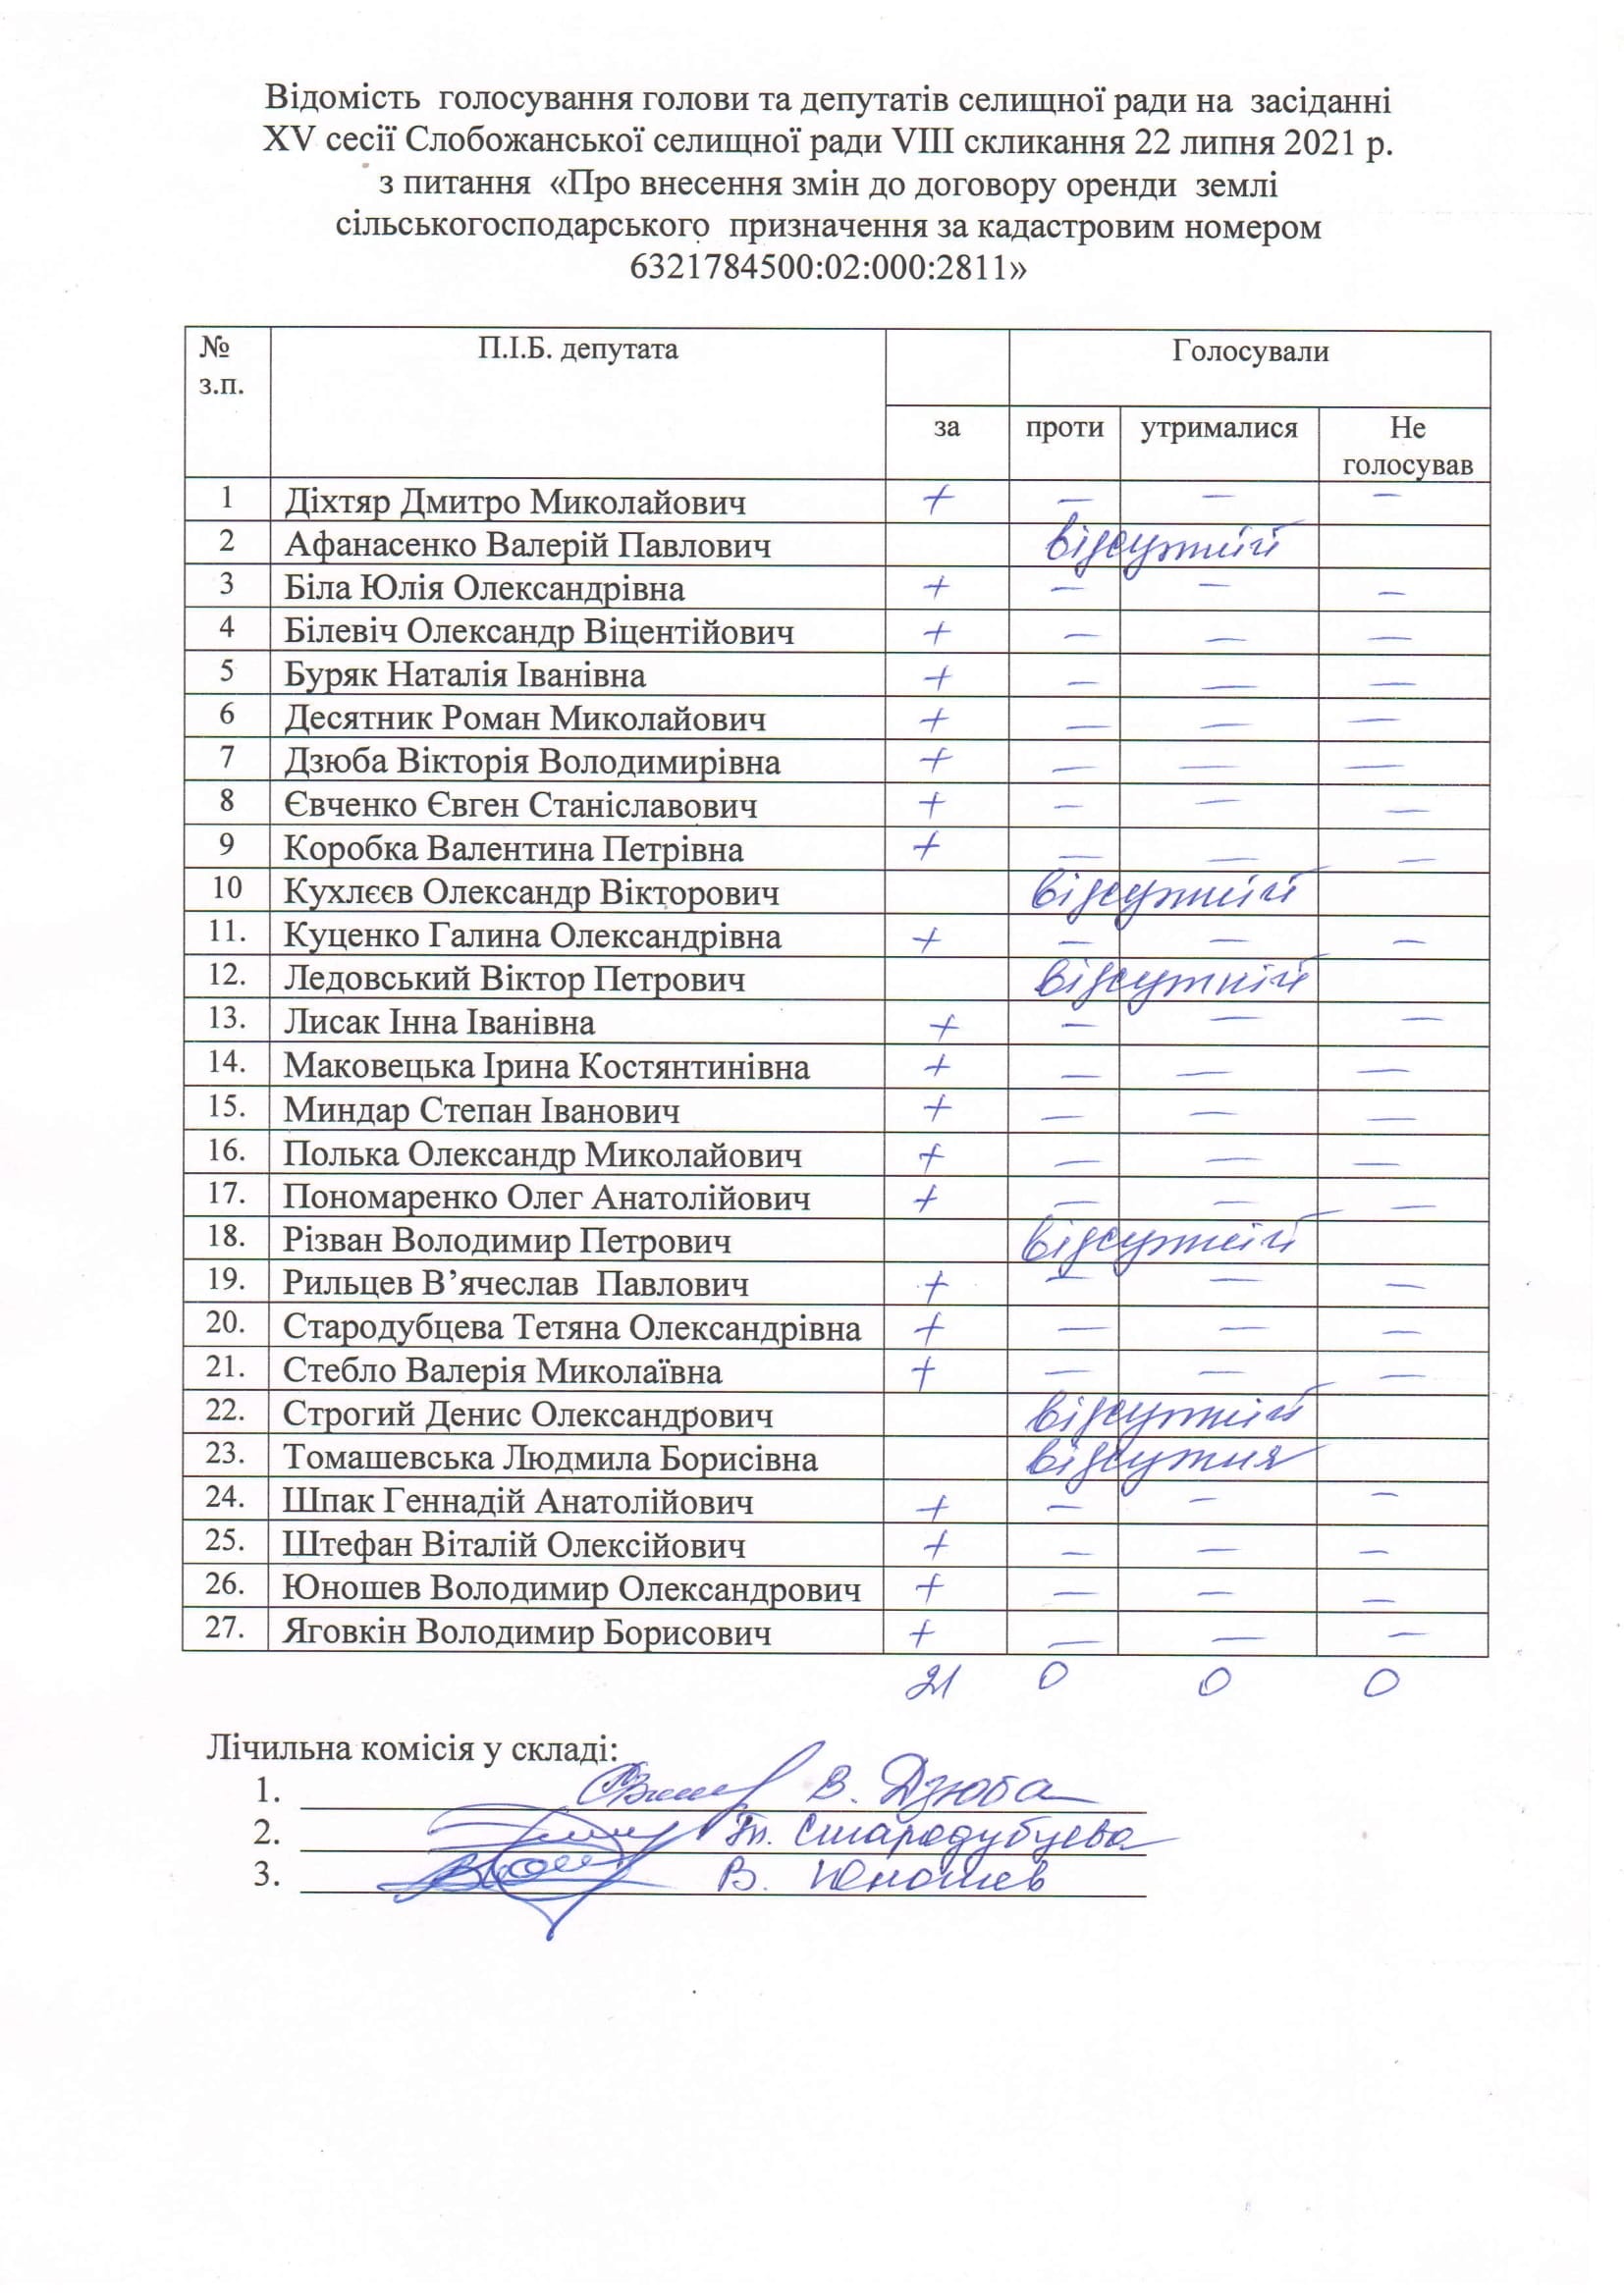 Відомість голосування голови та депутатів селищної ради на засіданні
XV сесії Слобожанської селищної ради VIII скликання 22 липня 2021 р.
з питання «Про внесення змін до договору оренди землі
сільськогосподарського призначення за кадастровим номером
6321784500:02:000:2811»
№ з.п. П.І.Б. депутата Голосували
за проти утрималися Не голосував
1 Діхтяр Дмитро Миколайович + – – –
2 Афанасенко Валерій Павлович відсутній
3 Біла Юлія Олександрівна + – – –
4 Білевіч Олександр Віцентійович + – – –
5 Буряк Наталія Іванівна + – – –
6 Десятник Роман Миколайович + – – –
7 Дзюба Вікторія Володимирівна + – – –
8 Євченко Євген Станіславович + – – –
9 Коробка Валентина Петрівна + – – –
10 Кухлєєв Олександр Вікторович відсутній
11. Куценко Галина Олександрівна + – – –
12. Ледовський Віктор Петрович відсутній
13. Лисак Інна Іванівна + – – –
14. Маковецька Ірина Костянтинівна + – – –
15. Миндар Степан Іванович + – – –
16. Полька Олександр Миколайович + – – –
17. Пономаренко Олег Анатолійович + – – –
18. Різван Володимир Петрович відсутній
19. Рильцев В’ячеслав Павлович + – – –
20. Стародубцева Тетяна Олександрівна + – – –
21. Стебло Валерія Миколаївна + – – –
22. Строгий Денис Олександрович відсутній
23. Томашевська Людмила Борисівна відсутня
24. Шпак Геннадій Анатолійович + – – –
25. Штефан Віталій Олексійович + – – –
26. Юношев Володимир Олександрович + – – –
27. Яговкін Володимир Борисович + – – –
21 0 0 0
Лічильна комісія у складі:
1. В. Дзюба
2. Т. Стародубцева
3. В. Юношев